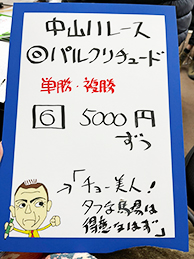 中山11レース
◎パルクリチュード
単勝・複勝
6 5000円
ずつ
→「チョー美人!
タフな馬場は
得意なはず」